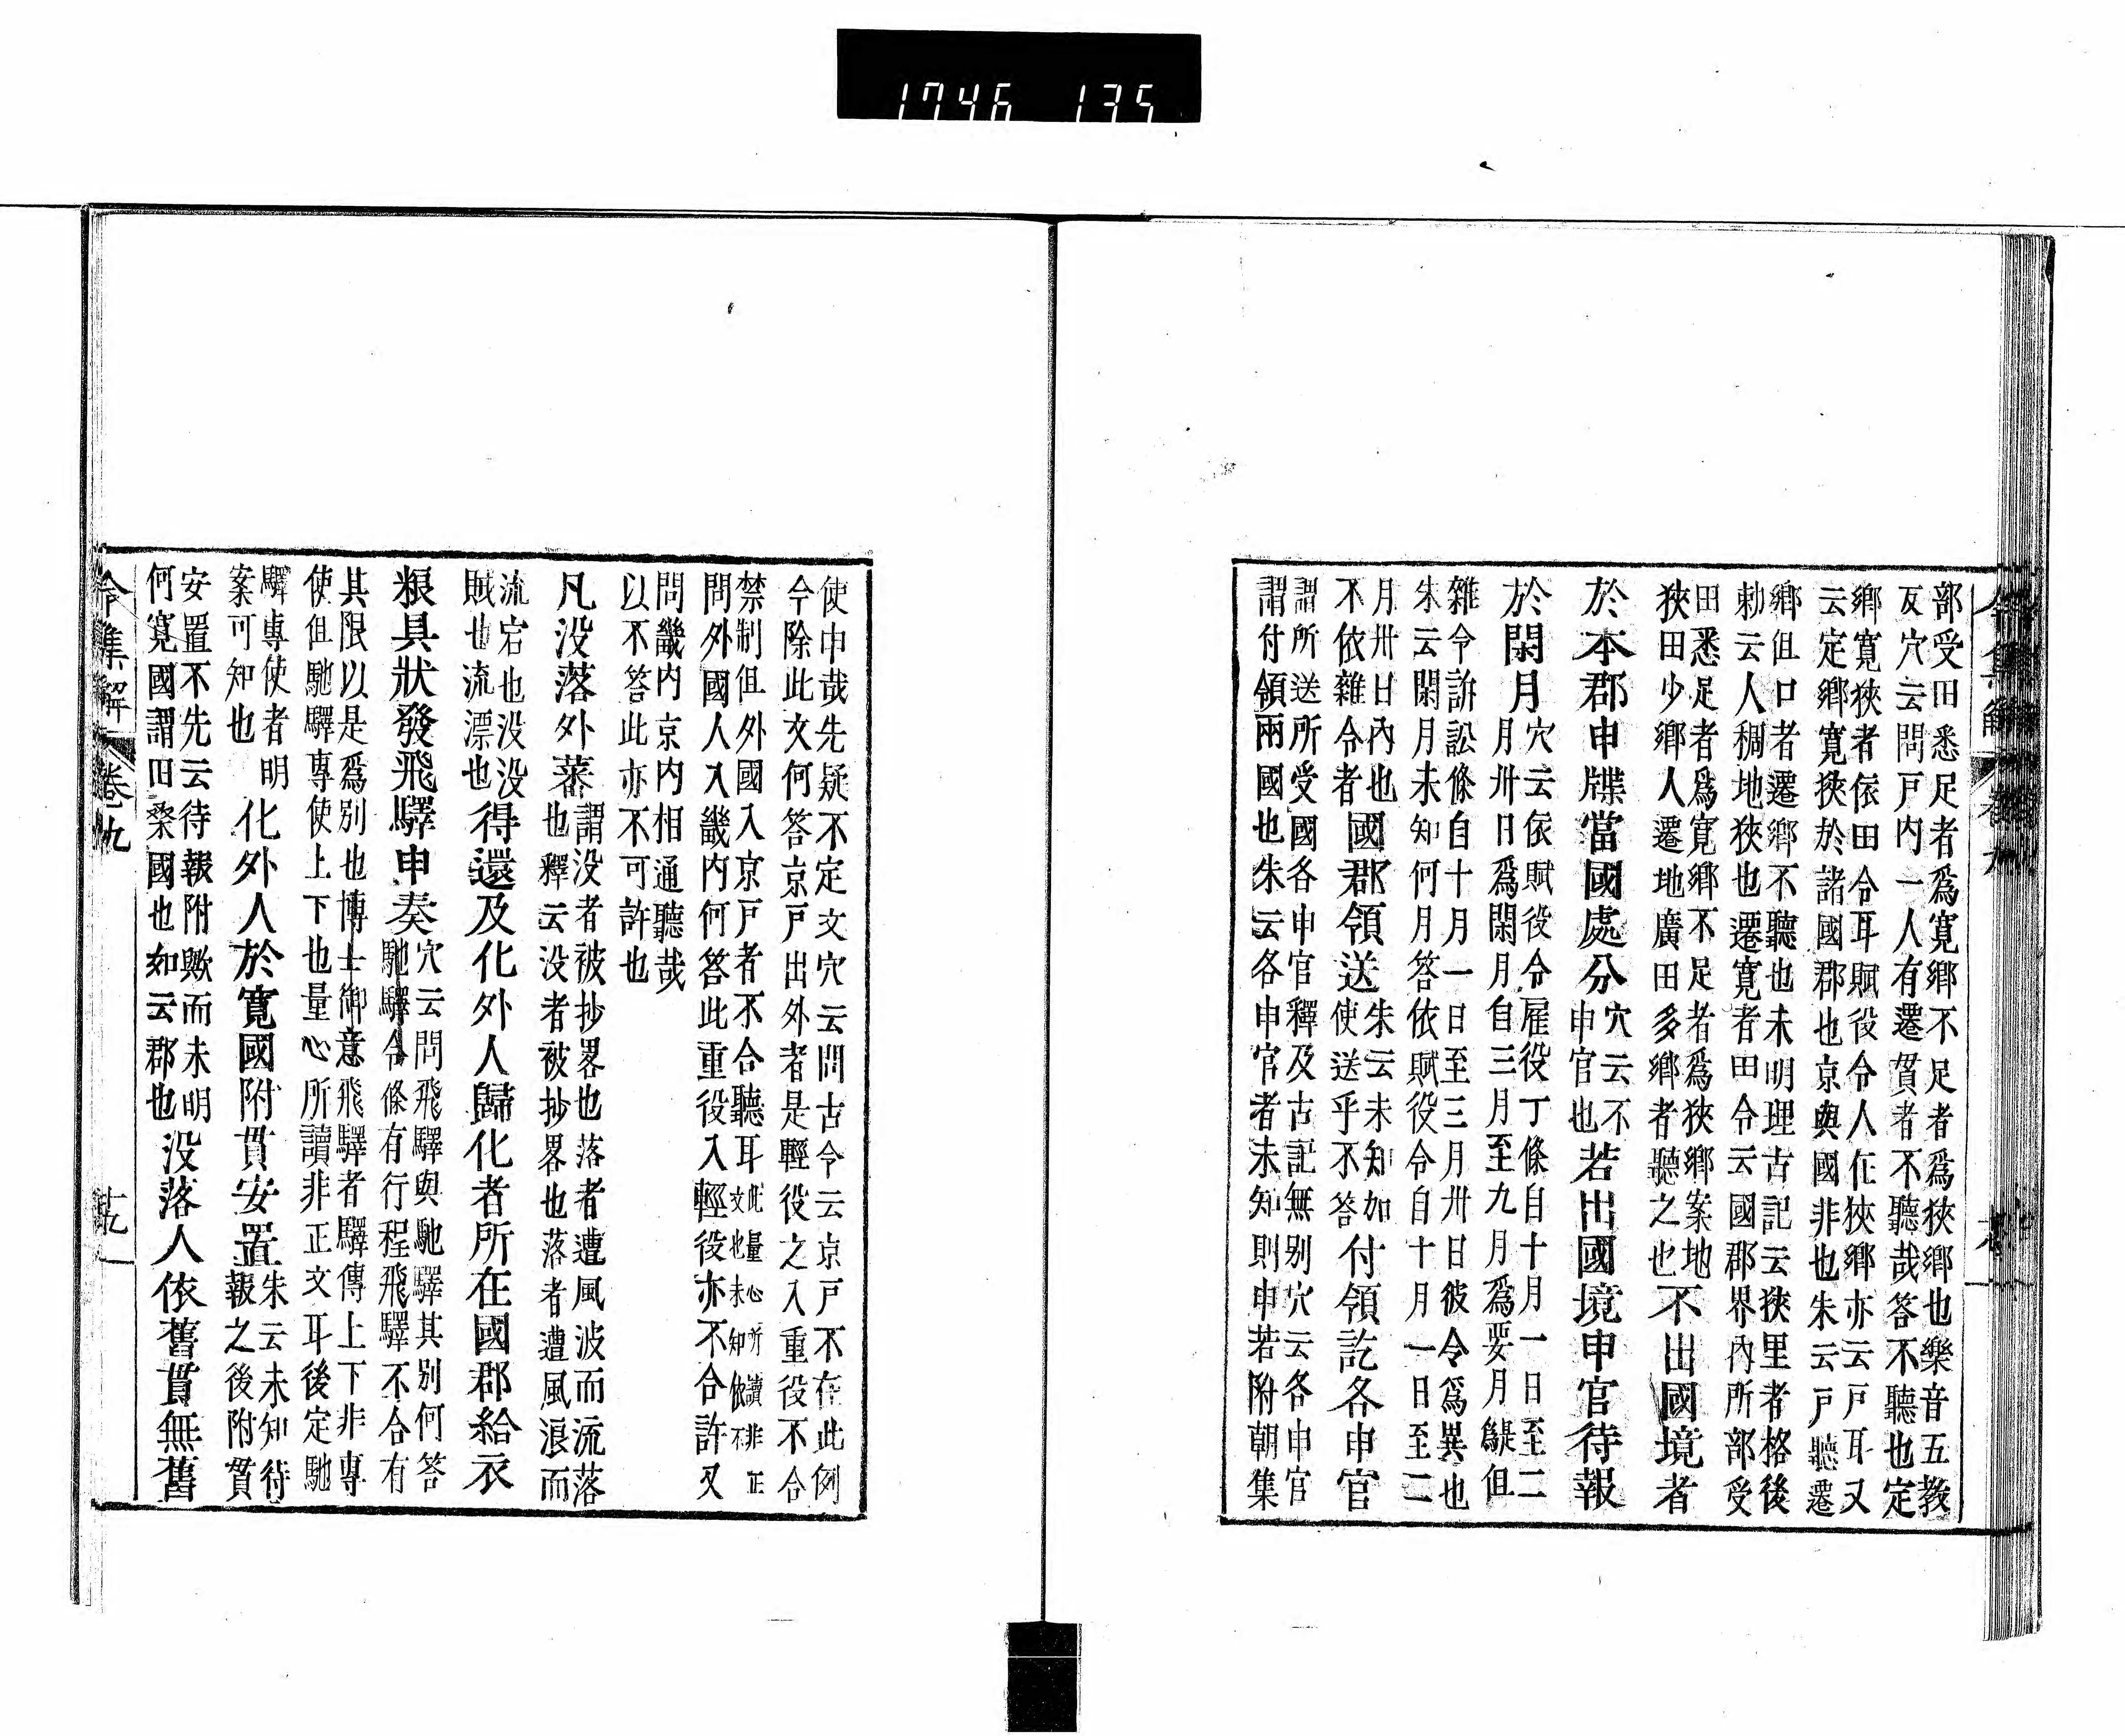 1746 135
部受田悉足者爲寛鄉不足者爲狹鄉也樂音五教
反穴云問戸内一人有遷貫者不聽哉答不聽也定
鄉寛狹者依田令耳賦役令人在狹鄉亦云戸耳又
云定鄉寛狹於諸國郡也京與國非也朱云戸聽遷
鄉但口者遷鄉不聽也未明理古記云狹里者格後
勅云人稠地狹也遷寛者田令云國郡界内所部受
田悉足者爲寛鄉不足者爲狹鄉案地
狹田少鄉人遷地廣田多鄉者聽之也
不出國境者
於本郡申牒當國處分
穴云不
申官也
若出國境申官待報
於閑月
穴云依賦役令雇役丁條自十月一日至二
月卅日爲閑月自三月至九月爲要月者但
雜令訴訟條自十月一日至三月卅日彼令爲異也
朱云閑月未知何月答依賦役令自十月一日至二
月卅日内也
不依雜令者
國郡領送
朱云未知如
使送乎不答
付領訖各申官
謂所送所受國各申官釋及古記無別穴云各申官
謂付領兩國也朱云各申官者未知則申若附朝集
令集解 卷九
使申哉先疑不定文穴云問古令云京戸不在此例
今除此文何答京戸出外者是輕役之入重役不合
禁制但外國入京戸者不合聽耳
此量心所讀非正
文也未知依不
問外國人入畿内何答此重役入輕役亦不合許又
問畿内京内相通聽哉
以不答此亦不可許也
凡没落外蕃
謂没者被抄畧也落者遭風波而流落
也釋云没者被抄畧也落者遭風浪而
流宕也没没
賊也流漂也
得還及化外人歸化者所在國郡給衣
粮具狀發飛驛申奏
穴云問飛驛與馳驛其別何答
馳驛令條有行程飛驛不合有
其限以是爲別也博士御意飛驛者驛傳上下非專
使但馳驛專使上下也量心所讀非正文耳後定馳
驛專使者明
案可知也
化外人於寛國附貫安置
朱云未知待
報之後附貫
安置不先云待報附歟而未明
何寛國謂田桑國也如云郡也
没落人依舊貫無舊
令集解 卷九